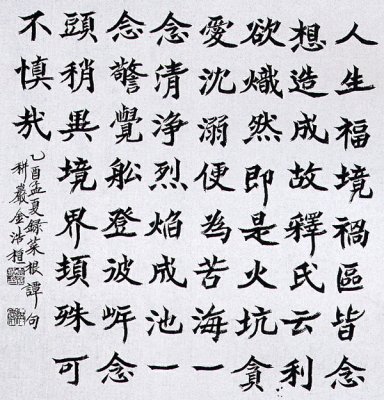 人生福境禍區皆念
想造成故釋氏云利
欲熾然即是火坑貪
愛沈溺便為苦海一
念清淨烈焰成池一
念警覺舩登彼岸念
頭稍異境界頓殊可
不慎哉
乙酉孟夏錄菜根譚句
耕巖金浩